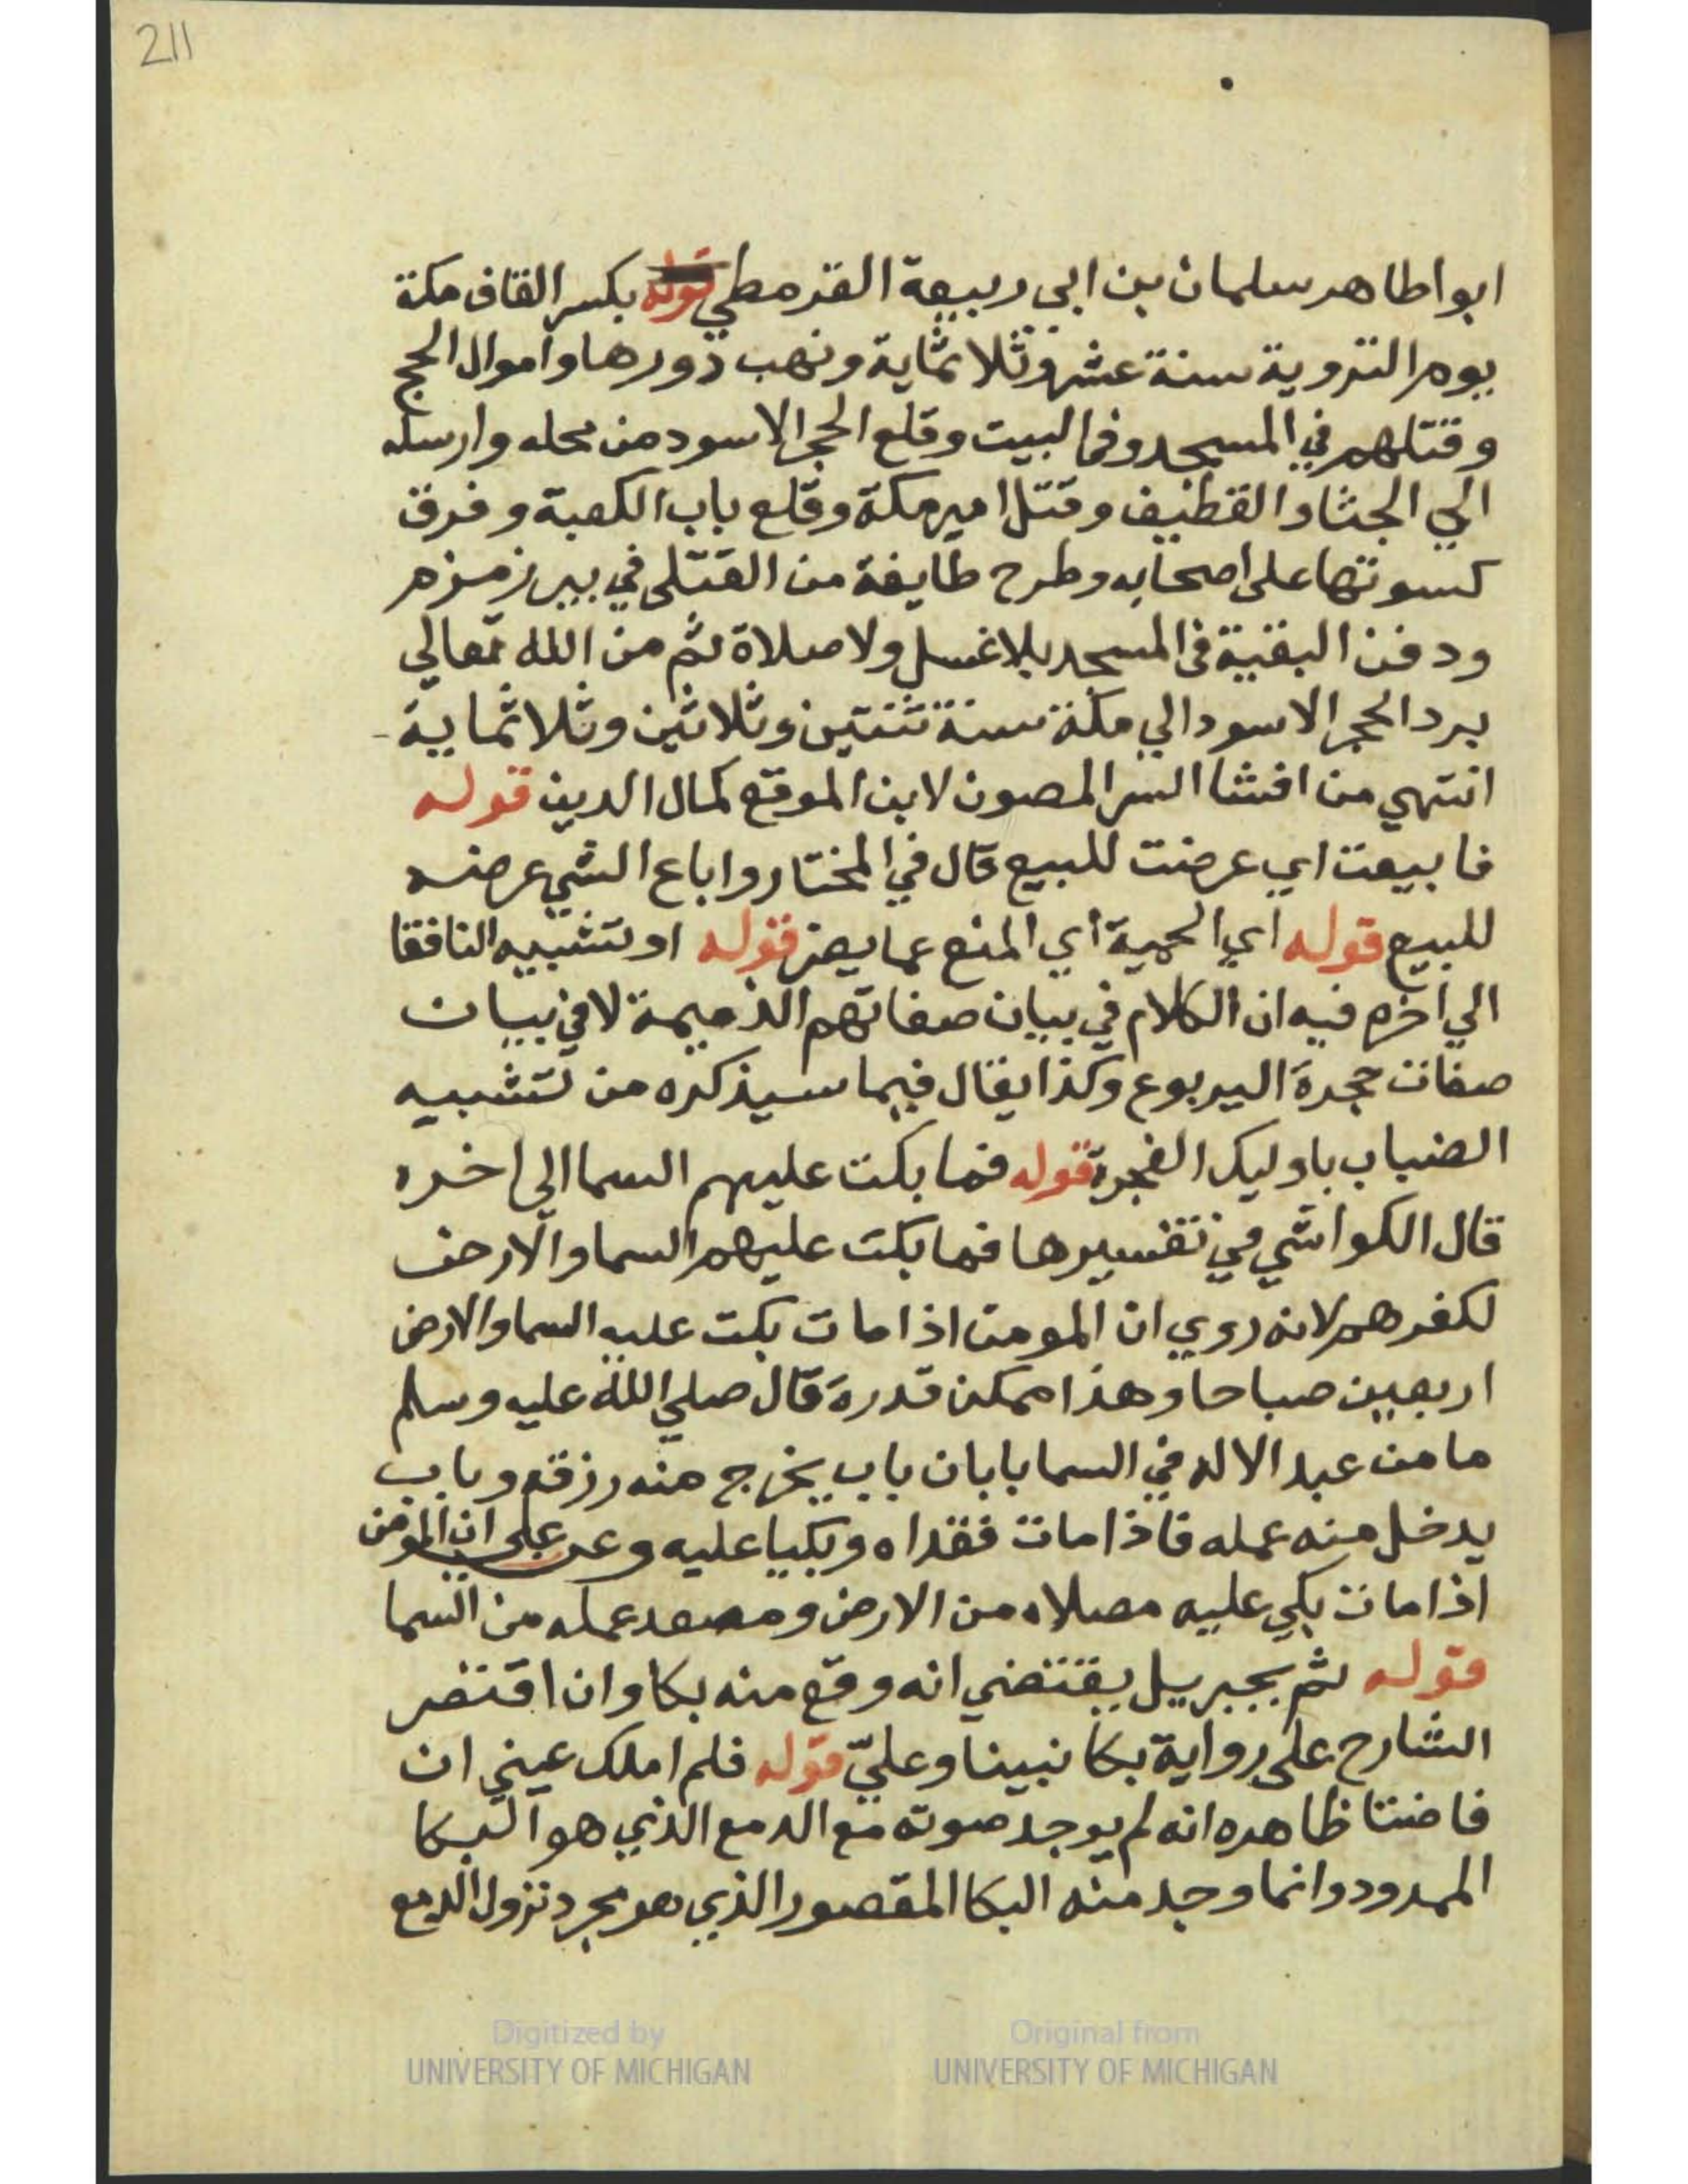 211
ابوا طاهر سلمان بن ابي ربيعة القرمطي قوله بكسر القاف مكة
يوم التروية سنة عشر وثلاثماية ونهب دورها واموال الحج
وقتلهم في المسجد وفي البيت وقلع الحجر الاسود من محله وارسله
الي الجثا والقطيف وقتل امير مكة وقلع باب الكعبة وفرق
كسوتها على اصحابه وطرح طايفة من القتلى في بير زمزم
ودفن البقية في المسجد بلا غسل ولا صلاة ثم من الله تعالي
برد الحجر الاسود الي مكة سنة ثنتين وثلاثين وثلاثماية
انتهي من افشا السر المصون لابن الموقع كمال الدين قوله
فابيعت اي عرضت للبيع قال في المختار واباع الشي عرضه
للبيع قوله اي الحمية اي المنع عما يضر قوله او تشبيه النافقا
الي اخره فيه ان الكلام في بيان صفاتهم الذميمة لا في بيان
صفات جحرة اليربوع وكذا يقال فيما سيذكره من تشبيه
الضباب باوليك الفجرة قوله فما بكت عليهم السما الى اخره
قال الكواشي في تفسيرها فما بكت عليهم السما والارض
لكفرهم لانه روي ان المومن اذا مات بكت عليه السما والارض
اربعين صباحا وهذا ممكن قدرة قال صلي الله عليه وسلم
ما من عبد الا له في السما بابان باب يخرج منه رزقه وباب
يدخل منه عمله فاذا مات فقداه وبكيا عليه وعن علي ان المومن
اذا مات بكي عليه مصلاه من الارض ومصعد عمله من السما
قوله ثم بجبريل يقتضي انه وقع منه بكا وان اقتصر
الشارح على رواية بكا نبينا وعليّ قوله فلم املك عيني ان
فاضتا ظاهره انه لم يوجد صوته مع الدمع الذي هو البكا
الممدود وانما وجد منه البكا المقصور الذي هو مجرد نزول الدمع
Digitized by
UNIVERSITY OF MICHIGAN
Original from
UNIVERSITY OF MICHIGAN